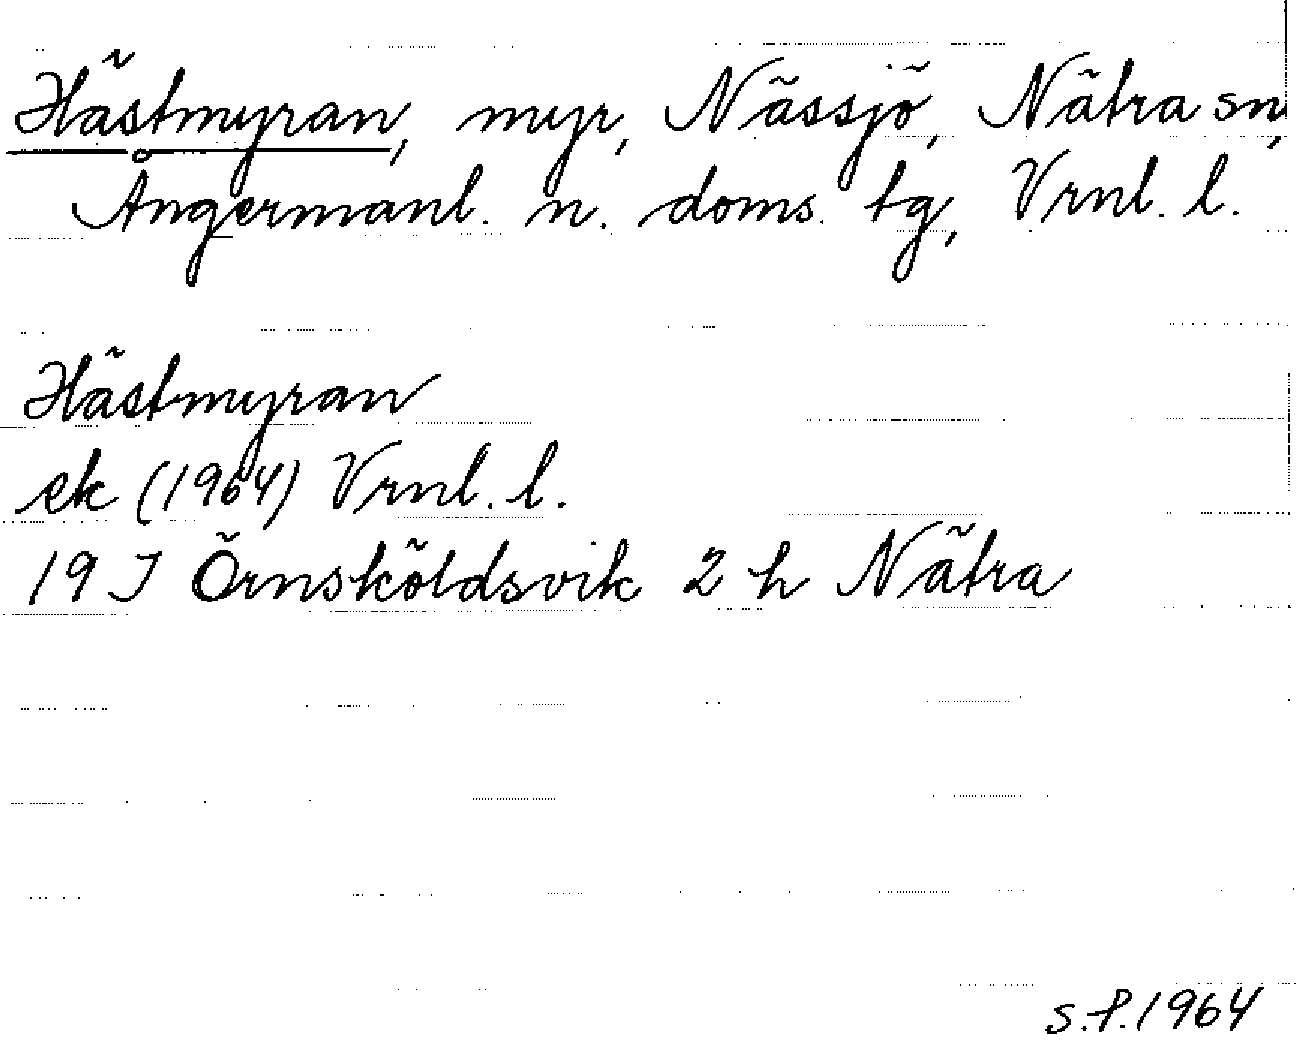 Hästmyran, myr, Nässjö, Nätra sn,
Ångermanl. n. doms. tg, Vrnl. l.
Hästmyran
ek (1964) Vrnl. l.
19 J Örnsköldsvik 2 h Nätra
s.f. 1964